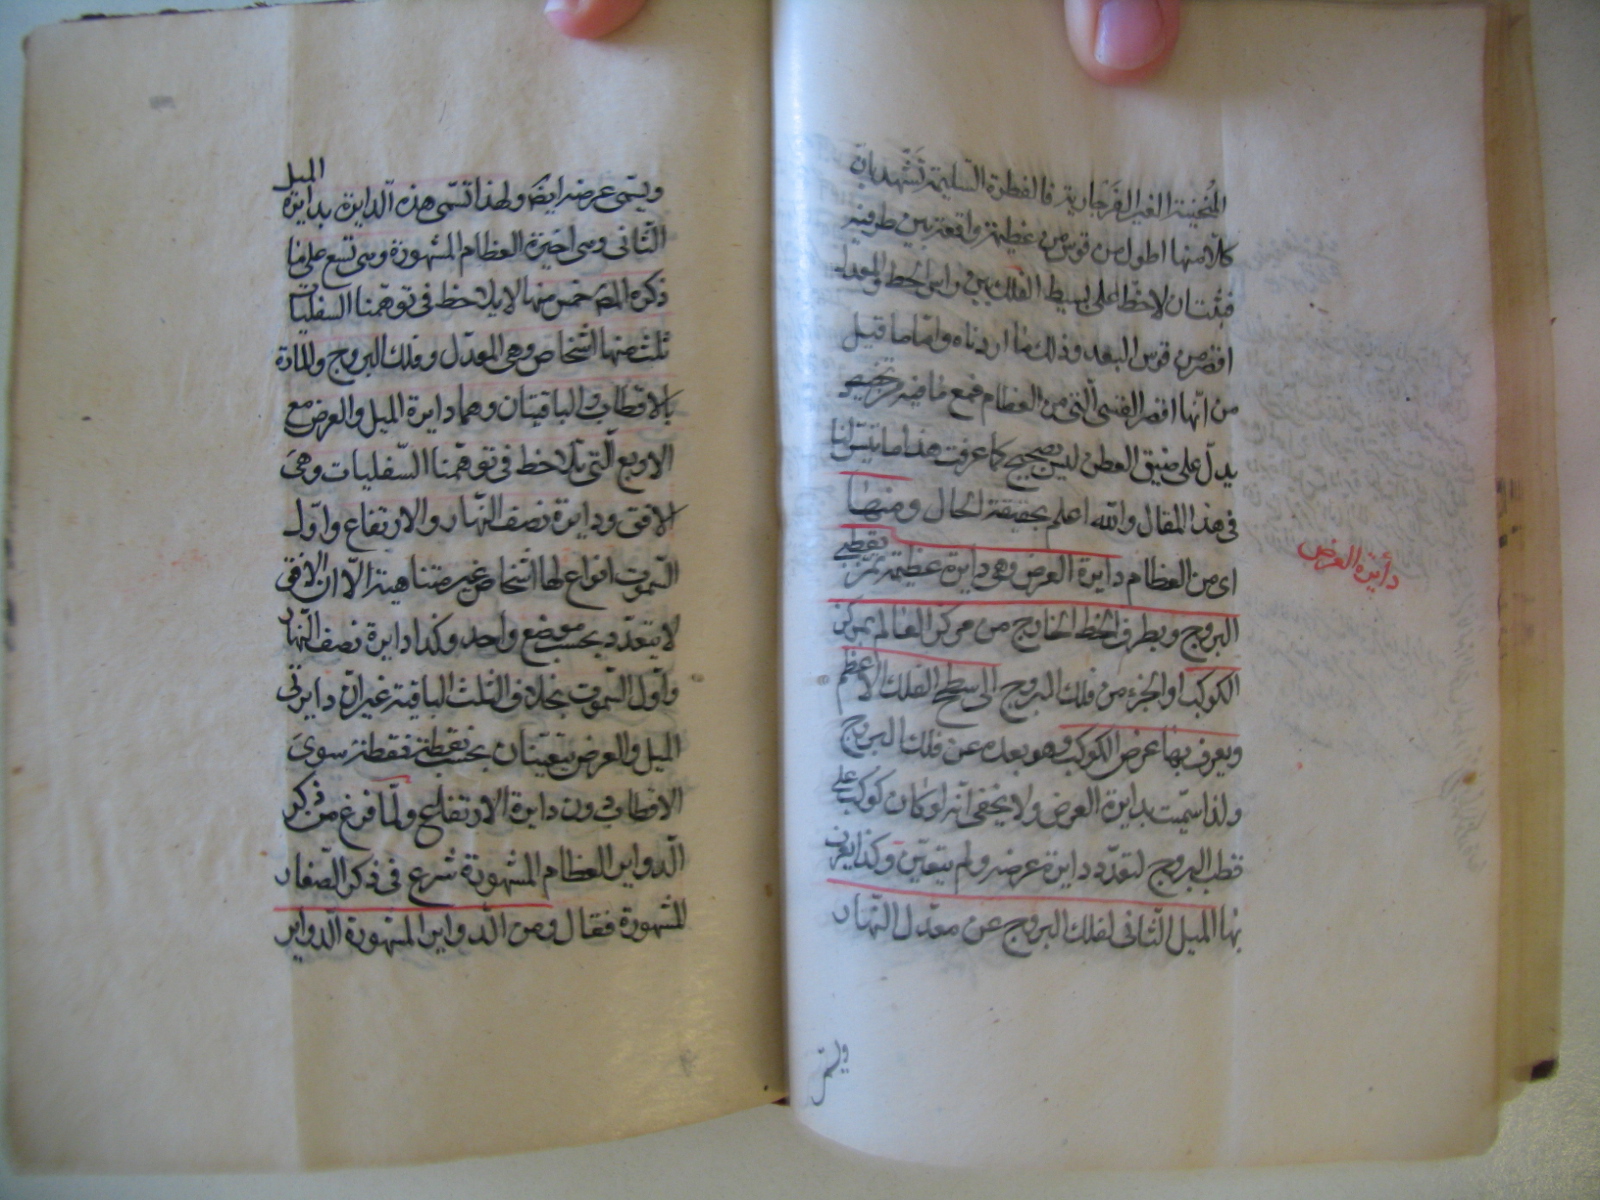 المنحنية الغير الفرجارية فالفطرة السليمة تشهد بان
كلا منها اطول من قوس من عظيمة واقعة بين طرفيه
على بسيط الفلك بين راس الخط والمعدل
اقصر من قوس البعد وذلك ما اردناه واما ما قيل
من انها اقصر القسي التي من العظام فمع ما فيه
يدل على ضيق العطن ليس بصحيح كما عرفت هذا ما تيسر لنا
في هذا المقال والله اعلم بحقيقة الحال ومنها
اى من العظام دايرة العرض وهو دايرة عظيمة تمر بقطبي
البروج وبطرف الخط الخارج من مركز العالم بمركز
الكوكب او الجزء من فلك البروج الى سطح الفلك الاعظم
ويعرف بها عرض الكوكب وهو بعده عن فلك البروج
ولذا سميت بدايرة العرض ولا يخفى انه لو كان كوكب على
قطب البروج لتعدد دايرة عرضه ولم يتعين وكذا يعرف
بها الميل الثانى لفلك البروج عن معدل النهار
ويسمى
دأيرة العرض
ويسمى عرضه ايضا ولهذا تسمى هذه الدايرة بدايرة الميل
الثانى وهى اخيرة العظام المشهورة وهى تسع على ما
ذكره المص خمس منها لا يلاحظ فى توهمنا السفليات
ثلث منها اشخاص وهى المعدل وفلك البروج والمادة
بالاقطاب والباقيتان وهما دايرة الميل والعرض مع
الاربع التى تلاحظ فى توهمنا السفليات وهى
الافق ودايرة نصف النهار والارتفاع واول
السموت انواع لها اشخاص غير متناهية الا ان الافق
لا يتعدد بحسب موضع واحد وكذا دايرة نصف النهار
واول السموت بخلاف الثلث الباقية غير ان دايرتى
الميل والعرض يتعينان بحسب نقطة فقطة سوى
الاقطاب دون دايرة الارتفاع ولما فرغ من ذكر
الدواير العظام المشهورة شرع فى ذكر الصغار
المشهورة فقال ومن الدواير المشهورة الدواير